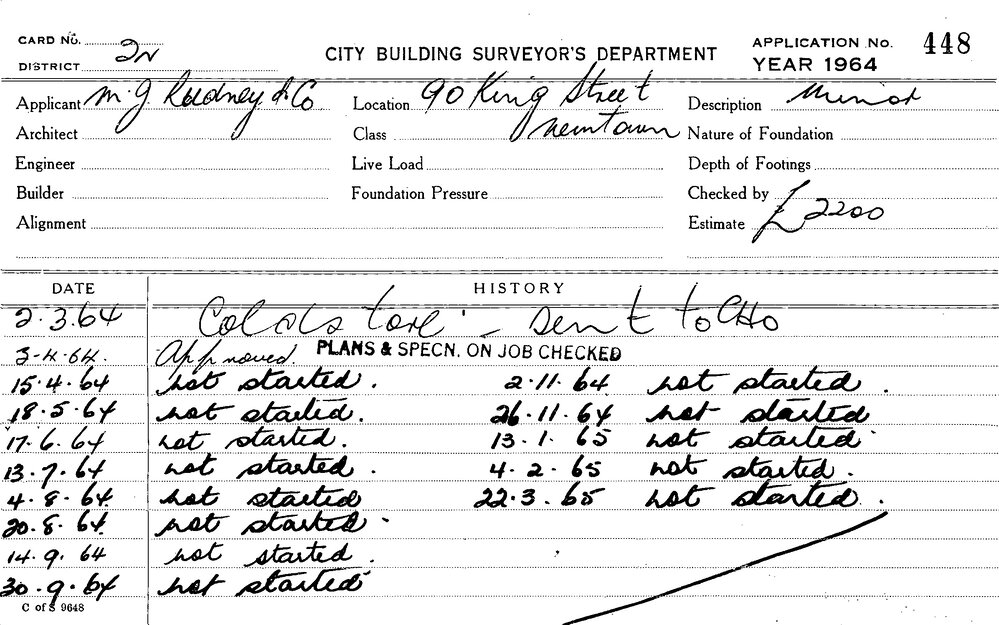 CARD No. CITY BUILDING SURVEYOR'S DEPARTMENT APPLICATION No. 448
DISTRICT 2N YEAR 1964
Applicant M. J. Rodney & Co Location 90 King Street Description Minor
Architect Class Newtown Nature of Foundation
Engineer Live Load Depth of Footings
Builder Foundation Pressure Checked by
Alignment Estimate £2200
DATE HISTORY
2.3.64 Coldstore - Sent to CHO
3-4-64. Approved. PLANS & SPECN. ON JOB CHECKED
15.4.64 not started. 2.11.64 not started.
18.5.64 not started. 26.11.64 not started
17.6.64 not started. 13.1.65 not started
13.7.64 not started. 4.2.65 not started.
4.8.64 not started 22.3.65 not started.
20.8.64 not started.
14.9.64 not started.
30.9.64 not started
C of S 9648